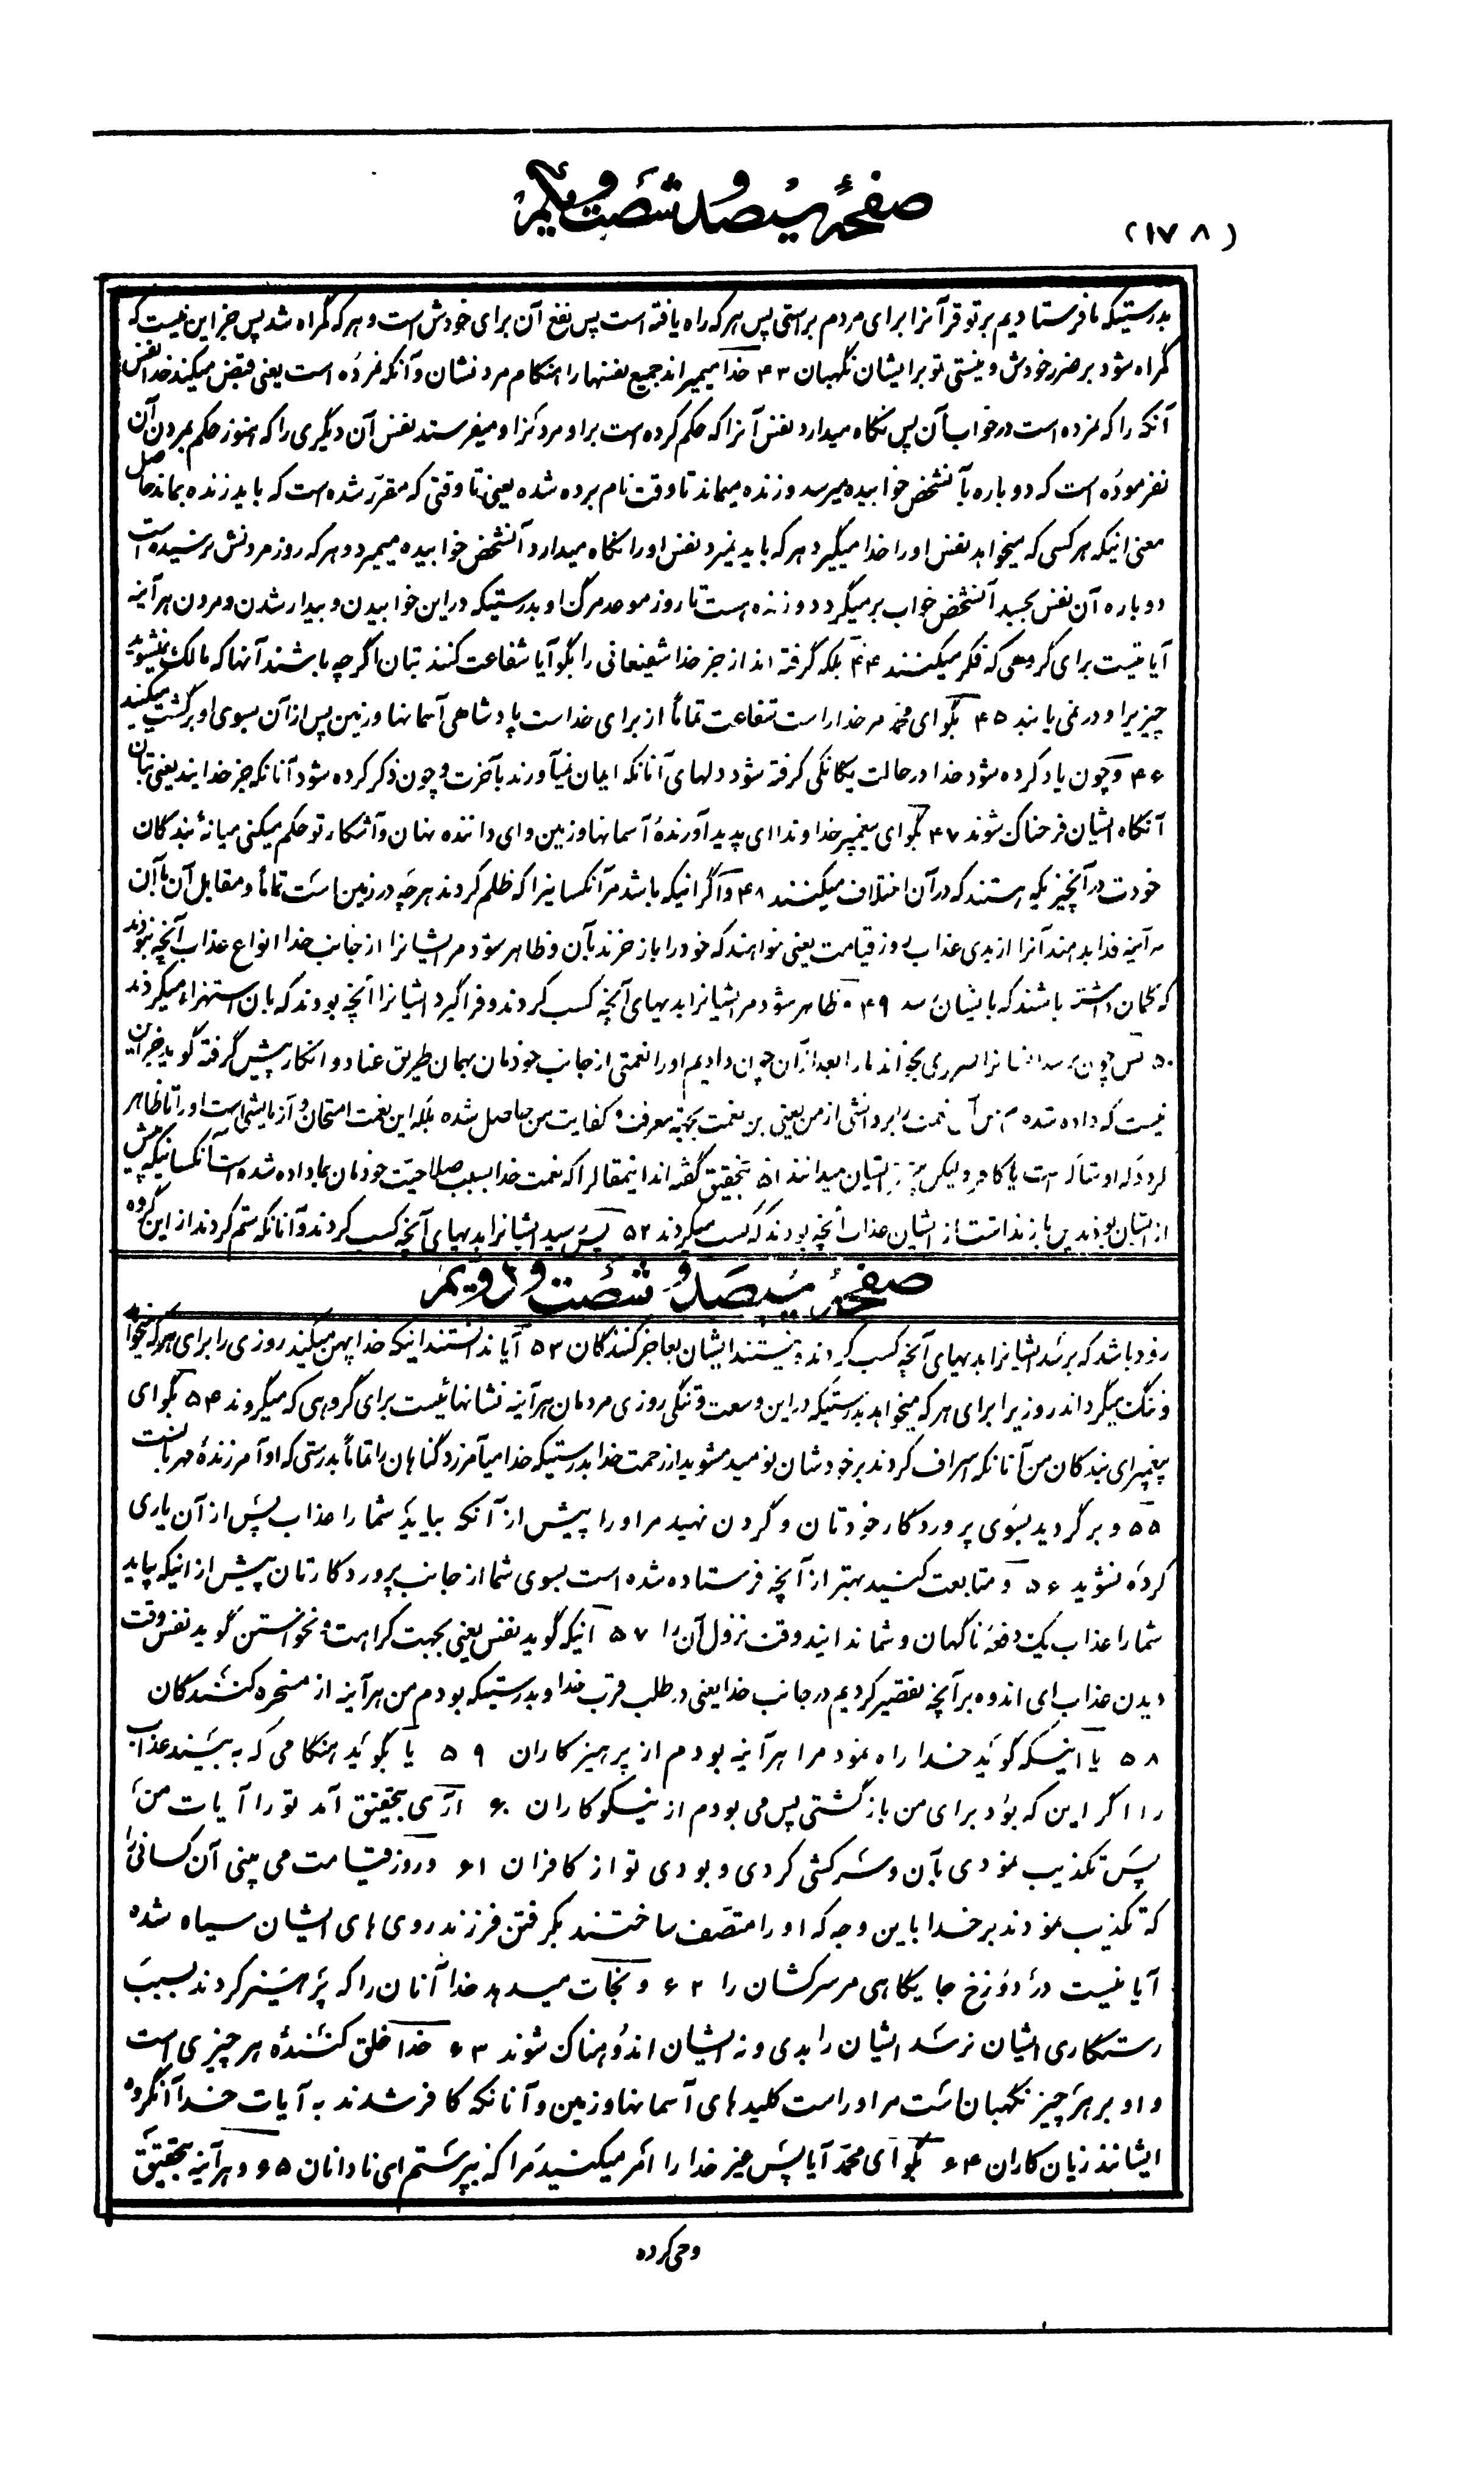 صفحهٔ سیصد و شصت و یکم
(۱۷۸)
بدرستیکه ما فرستادیم بر تو قرآنرا برای مردم براستی پس هر که راه یافته است پس نفع آن برای خودش است و هر که گمراه شد پس جز این نیست که
گمراه شود بر ضرر خودش و نیستی تو بر ایشان نگهبان ۴۳ خدا میمیراند جمیع نفسها را هنگام مردنشان و آنکه نمرده است یعنی قبض میکند خدا نفس
آنکه را که نمرده است در خواب آن پس نگاه میدارد نفس آنرا که حکم کرده است براو مردنرا و میفرستد نفس آن دیگری را که هنوز حکم بمردن آن
نفرموده است که دوباره بآنشخص خوابیده میرسد و زنده میماند تا وقت نام برده شده یعنی تا وقتی که مقرر شده است که باید زنده بماند حاصل
معنی اینکه هر کسی که میخوابد نفس او را خدا میگیرد هر که باید بمیرد نفس او را نگاه میدارد آنشخص خوابیده میمیرد و هر که روز مردنش نرسیده است
دوباره آن نفس بجسد آنشخص خواب برمیگردد و زنده است تا روز موعد مرگ او بدرستیکه در این خوابیدن و بیدار شدن و مردن هر آینه
آیاتیست برای گروهی که فکر میکنند ۴۴ بلکه گرفته اند از جز خدا شفیعانی را بگو آیا شفاعت کنند بتان اگر چه باشند آنها که مالک نمیشوید
چیزیرا و درنمی یابند ۴۵ بگو ای محمد مر خدا راست شفاعت تماماً از برای خداست پادشاهی آسمانها و زمین پس از آن بسوی او برگشت میکنید
۴۶ و چون یاد کرده شود خدا در حالت یگانگی گرفته شود دلهای آنانکه ایمان نمیآورند بآخرت و چون ذکر کرده شود آنانکه جز خدایند یعنی بتان
آنگاه ایشان فرحناک شوند ۴۷ بگو ای پیغمبر خداوندا ای پدید آورندهٔ آسمانها و زمین و ای داننده نهان و آشکار تو حکم میکنی میانهٔ بندگان
خودت در آنچیزیکه هستند که در آن اختلاف میکنند ۴۸ و اگر اینکه باشد مر آنکسانیرا که ظلم کردند هر چه در زمین است تماماً و مقابل آن با آن
هر آینه فدا بدهند آنرا از بدی عذاب روز قیامت یعنی خواهند که خود را باز خرند بآن و ظاهر شود مر ایشانرا از جانب خدا انواع عذاب آنچه نبودند
که گمان داشته باشند که بایشان رسد ۴۹ و ظاهر شود مر ایشانرا بدیهای آنچه کسب کردند و فرا گیرد ایشانرا آنچه بودند که بآن استهزاء میکردند
۵۰ پس چون برسد انسانرا ضرری بخواند ما را بعد از آن چون دادیم او را نعمتی از جانب خودمان بهمان طریق عناد و انکار پیش گرفته گوید جز این
نیست که داده شده نعمت را بر دانشی از من یعنی نعمت بجهة معرفت و کفایت من حاصل شده بلکه این نعمت امتحان و آزمایشی است او را تا ظاهر
گردد که او شاکر است یا کافر ولیکن ایشان میدانند ۵۱ بتحقیق گفته اند اینمقاله را که نعمت خدا بسبب صلاحیت خودمان بما داده شده است آنکسانیکه پیش
از ایشان بودند پس باز نداشت از ایشان عذاب آنچه بودند که کسب میکردند ۵۲ پس رسید ایشانرا بدیهای آنچه کسب کردند و آنانکه ستم کردند از این گروه
صفحهٔ سیصد و شصت و دویم
زود باشد که برسد ایشانرا بدیهای آنچه کسب کردند و نیستند ایشان بعاجز کنندگان ۵۳ آیا ندانستند اینکه خدا پهن میکند روزی را برای هر که میخواهد
و تنگ میگرداند روزیرا برای هر که میخواهد بدرستیکه در این وسعت و تنگی روزی مردمان هر آینه نشانهائیست برای گروهی که میگروند ۵۴ بگو ای
پیغمبر ای بندگان من آنانکه اسراف کردند بر خودشان نومید مشوید از رحمت خدا بدرستیکه خدا میآمرزد گناهان را تماماً بدرستی که او آمرزندهٔ مهربانست
۵۵ و برگردید بسوی پروردگار خودتان و گردن نهید مر او را پیش از آنکه بیاید شما را عذاب پس از آن یاری
کرده نشوید ۵۶ و متابعت کنید بهتر از آنچه فرستاده شده است بسوی شما از جانب پروردگارتان پیش از اینکه بیاید
شما را عذاب یک دفعهٔ ناگهان و شما ندانید وقت نزول آن را ۵۷ اینکه گوید نفس یعنی بجهت کراهت و نخواستن گوید نفس وقت
دیدن عذاب ای اندوه بر آنچه تقصیر کردیم در جانب خدا یعنی در طلب قرب خدا و بدرستیکه بودم من هر آینه از مسخره کنندگان
۵۸ یا اینکه گوید خدا راه نمود مرا هر آینه بودم از پرهیزکاران ۵۹ یا بگوئید هنگامی که به بینند عذاب
را اگر این که بود برای من بازگشتی پس می بودم از نیکوکاران ۶۰ آری بتحقیق آمد تو را آیات من
پس تکذیب نمودی بآن و سرکشی کردی و بودی تو از کافران ۶۱ و روز قیامت می بینی آن کسانی را
که تکذیب نمودند بر خدا باین وجه که او را متصف ساختند بگرفتن فرزند روی های ایشان سیاه شده
آیا نیست در دوزخ جایگاهی مر سرکشان را ۶۲ و نجات میدهد خدا آنان را که پرهیز کردند بسبب
رستگاری ایشان نرسد ایشان را بدی و نه ایشان اندوهناک شوند ۶۳ خدا خلق کنندهٔ هر چیزی است
و او بر هر چیز نگهبان است مر او راست کلیدهای آسمانها و زمین و آنانکه کافر شدند به آیات خدا آنگروه
ایشانند زیان کاران ۶۴ بگو ای محمد آیا پس غیر خدا را امر میکنید مرا که بپرستم ای نادانان ۶۵ و هر آینه بتحقیق
وحی کرده